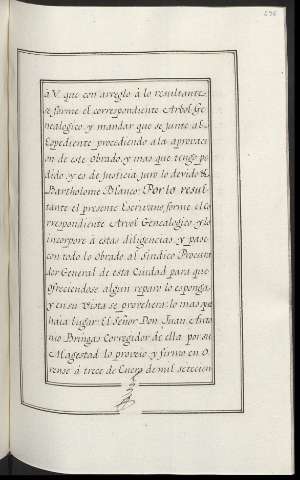 a V. que con arreglo à lo resultante
se forme el correspondiente Arvol Ge
nealogico y mandar que se junte al
Expediente procediendo ala aprovaci
on de este Obrado y mas que tengo pe
dido y es de Justicia juro lo devido &
Bartholome Blanco. Por lo resul
tante el presente Escrivano forme el co
rrespondiente Arvol Genealogico y lo
incorpore à estas diligencias y pase
con todo lo Obrado al Sindico Procura
dor General de esta Ciudad para que
Ofreciendose algun reparo lo esponga
y en su Vista se provehera lo mas que
haia lugar. El Señor Don Juan Anto
nio Bringas Corregidor de ella por su
Magestad lo proveio y firmo en O
rense à trece de Enero de mil setecien